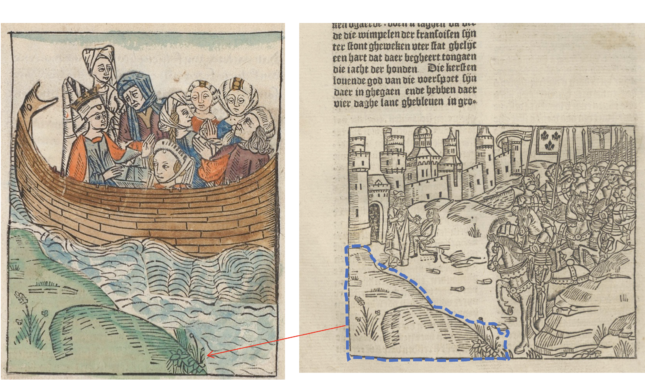 de die wimpelen der franſoiſen ſijn
ter ſtont gheweken vter ſtat ghelijc
een hart dat daer begheert tongaen
die iacht der honden Die kerſten
louende god van die voerſpoet ſijn
daer in ghegaen ende hebben daer
vier daghe lanc ghebleuen in gro⸗